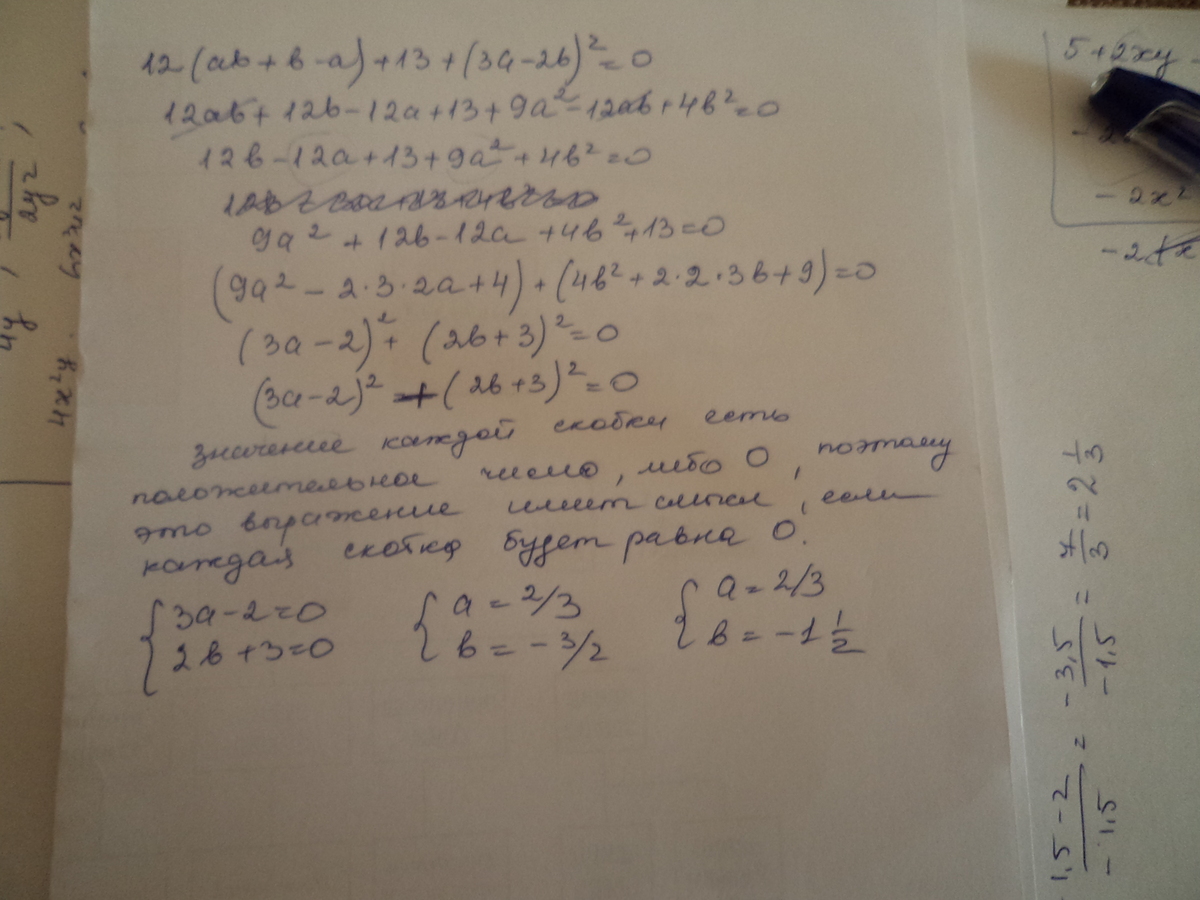 12(ab + b - a) + 13 + (3a - 2b)² = 0
12ab + 12b - 12a + 13 + 9a² - 12ab + 4b² = 0
12b - 12a + 13 + 9a² + 4b² = 0
9a² + 12b - 12a + 4b² + 13 = 0
(9a² - 2·3·2a + 4) + (4b² + 2·2·3b + 9) = 0
(3a - 2)² + (2b + 3)² = 0
(3a - 2)² + (2b + 3)² = 0
значение каждой скобки есть
положительное число, либо 0, поэтому
это выражение имеет смысл, если
каждая скобка будет равна 0.
{ 3a - 2 = 0 { a = 2/3 { a = 2/3
2b + 3 = 0 b = - 3/2 b = - 1 1/2
5 + 2xy -
- 2x²
4y
2y²
4x²y
1,5 - 2 / - 1,5 = - 3,5 / - 1,5 = 7/3 = 2 1/3